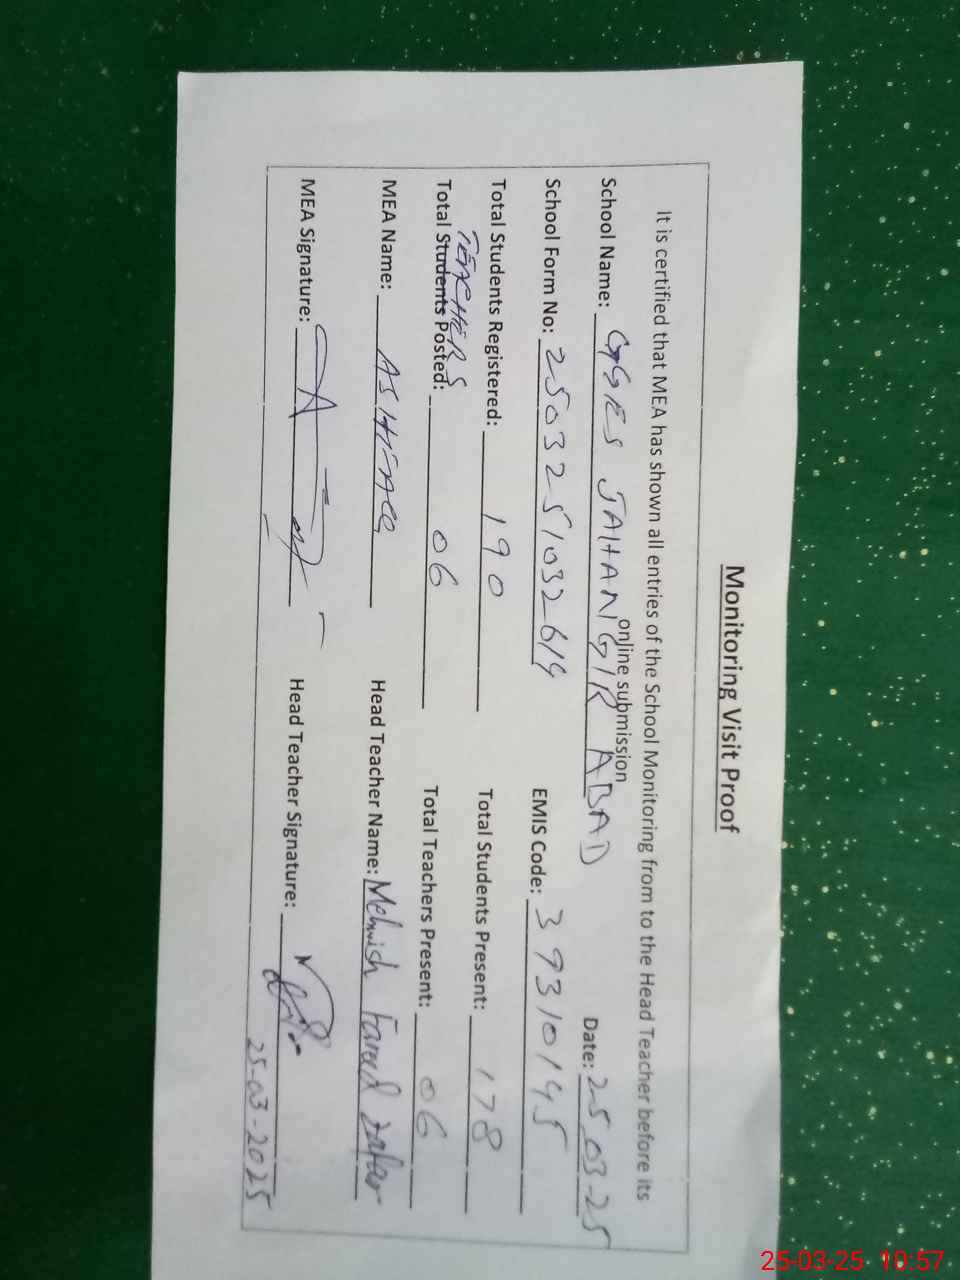 Monitoring Visit Proof
It is certified that MEA has shown all entries of the School Monitoring from to the Head Teacher before its
online submission
School Name: GGES JAHANGIR ABAD Date: 25.03-25
School Form No: 25032510326 EMIS Code: 39310145
Total Students Registered: 190 Total Students Present: 178
TEACHERS
Total Students Posted: 06 Total Teachers Present: 06
MEA Name: Head Teacher Name: Mehwish Fareed Zafar
MEA Signature: Head Teacher Signature:
25-03-2025
25-03-25 10:57